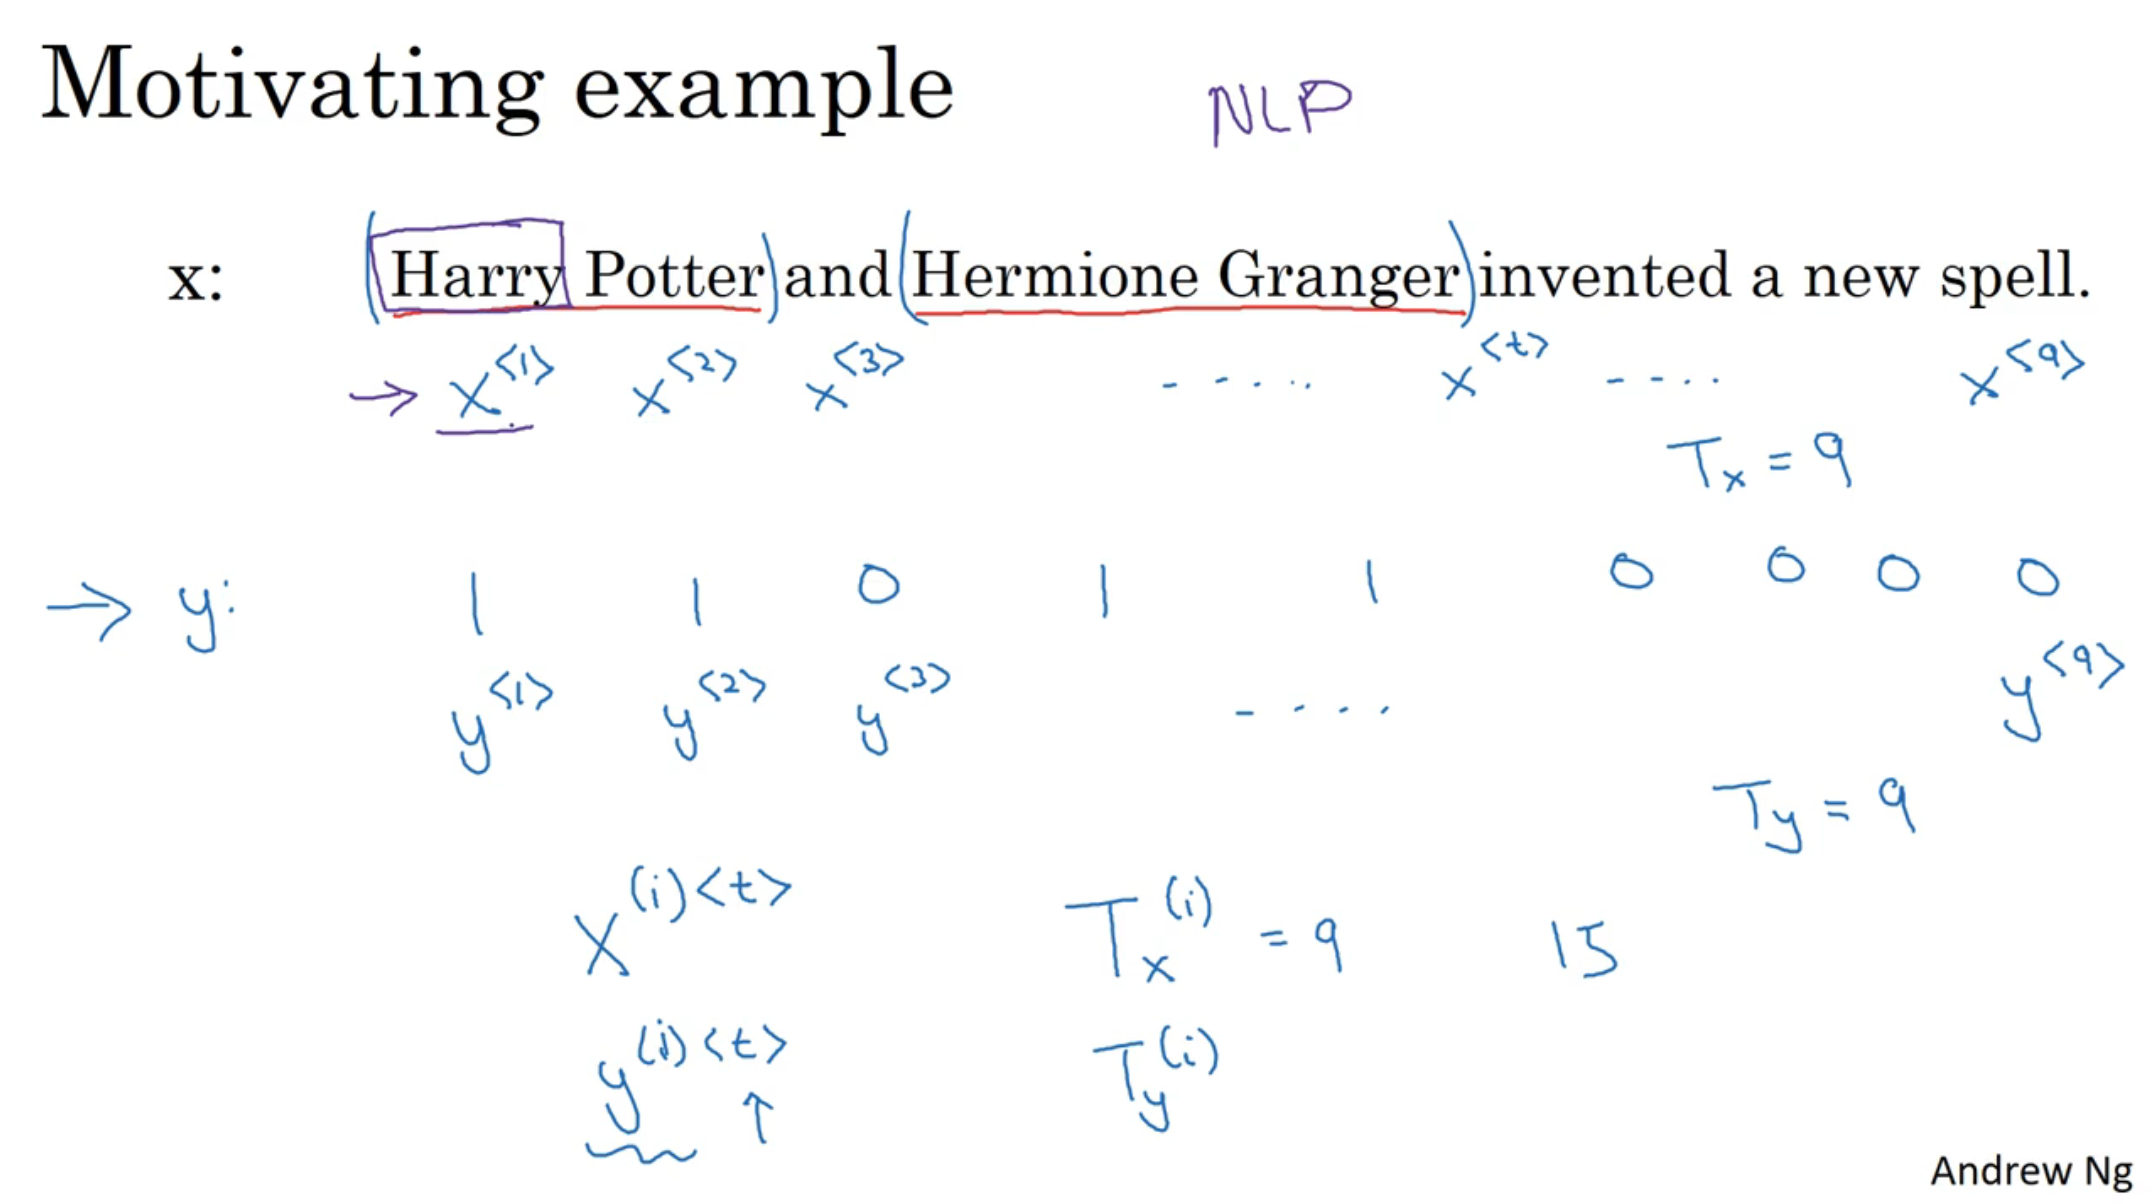 Motivating example NLP
x: (Harry Potter) and (Hermione Granger) invented a new spell.
→ x<1> x<2> x<3> - - - .. x<t> - - .. x<9>
Tx = 9
→ y: 1 1 0 1 1 0 0 0 0
y<1> y<2> y<3> - . . . y<9>
Ty = 9
X(i)<t> Tx(i) = 9 15
y(i)<t> Ty(i)
↑
Andrew Ng